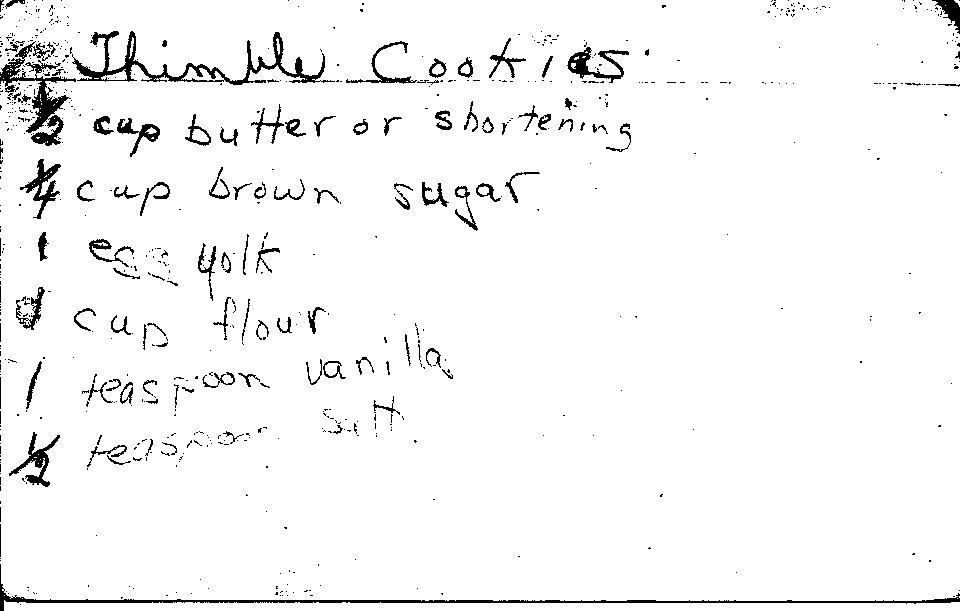 Thimble Cookies
1/2 cup butter or shortening
1/4 cup brown sugar
1 egg yolk
1 cup flour
1 teaspoon vanilla
1/2 teaspoon salt